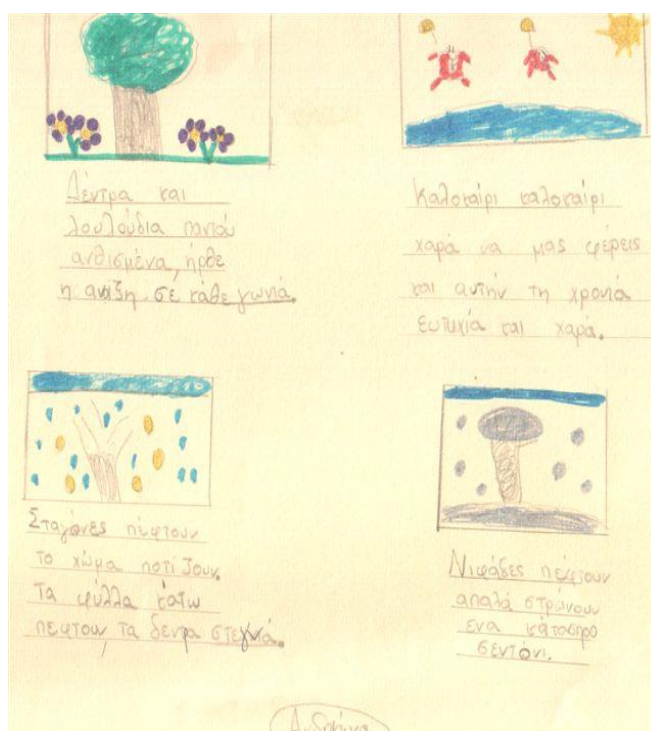 Δέντρα και
λουλούδια παντού
ανθισμένα, ήρθε
η άνοιξη σε κάθε γωνιά.
Καλοκαίρι καλοκαίρι
χαρά να μας φέρεις
και αυτήν τη χρονιά
ευτυχία και χαρά.
Σταγόνες πέφτουν
το χώμα ποτίζουν.
Τα φύλλα κάτω
πέφτουν, τα δεντρα στεγνά.
Νιφάδες πέφτουν
απαλά στρώνουν
ενα κάτασπρο
σεντόνι.